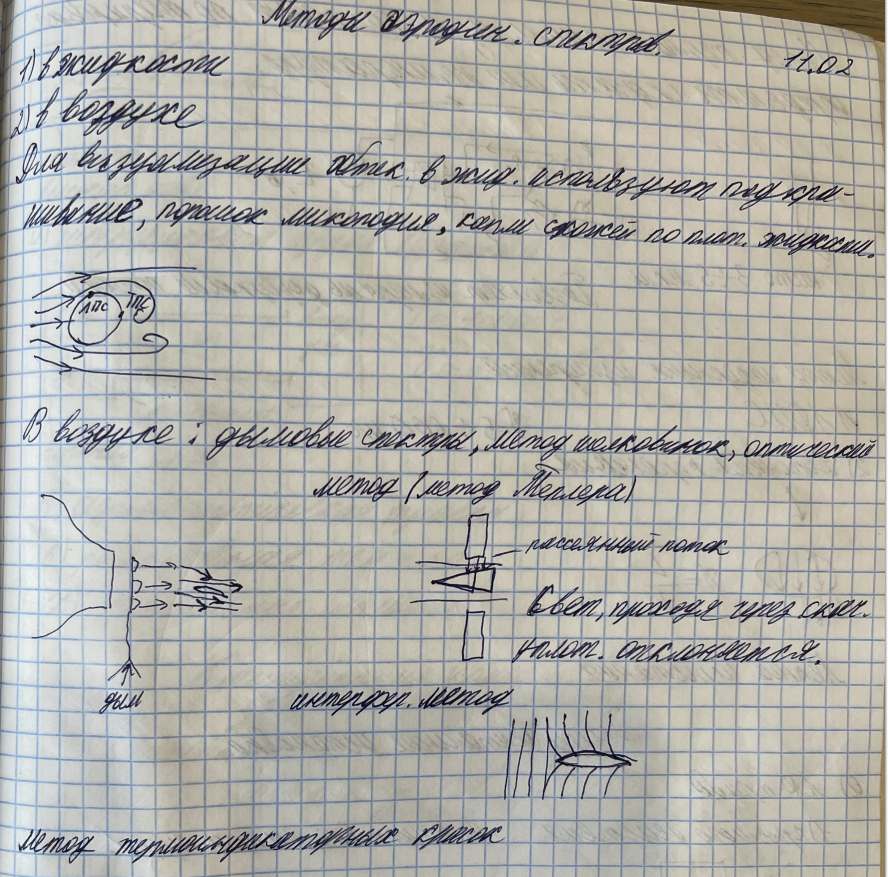 Методы аэродин. спектров.
11.02
1) в жидкости
2) в воздухе
Для визуализации обтек. в жид. используют подкра-
шивание, порошок ликоподия, капли схожей по плот. жидкости.
ЛПС ТПС
В воздухе: дымовые спектры, метод шелковинок, оптический
метод (метод Теплера)
рассеянный поток
Свет, проходя через скач.
уплот. отклоняется.
дым
интерфер. метод
Метод термоиндикаторных красок